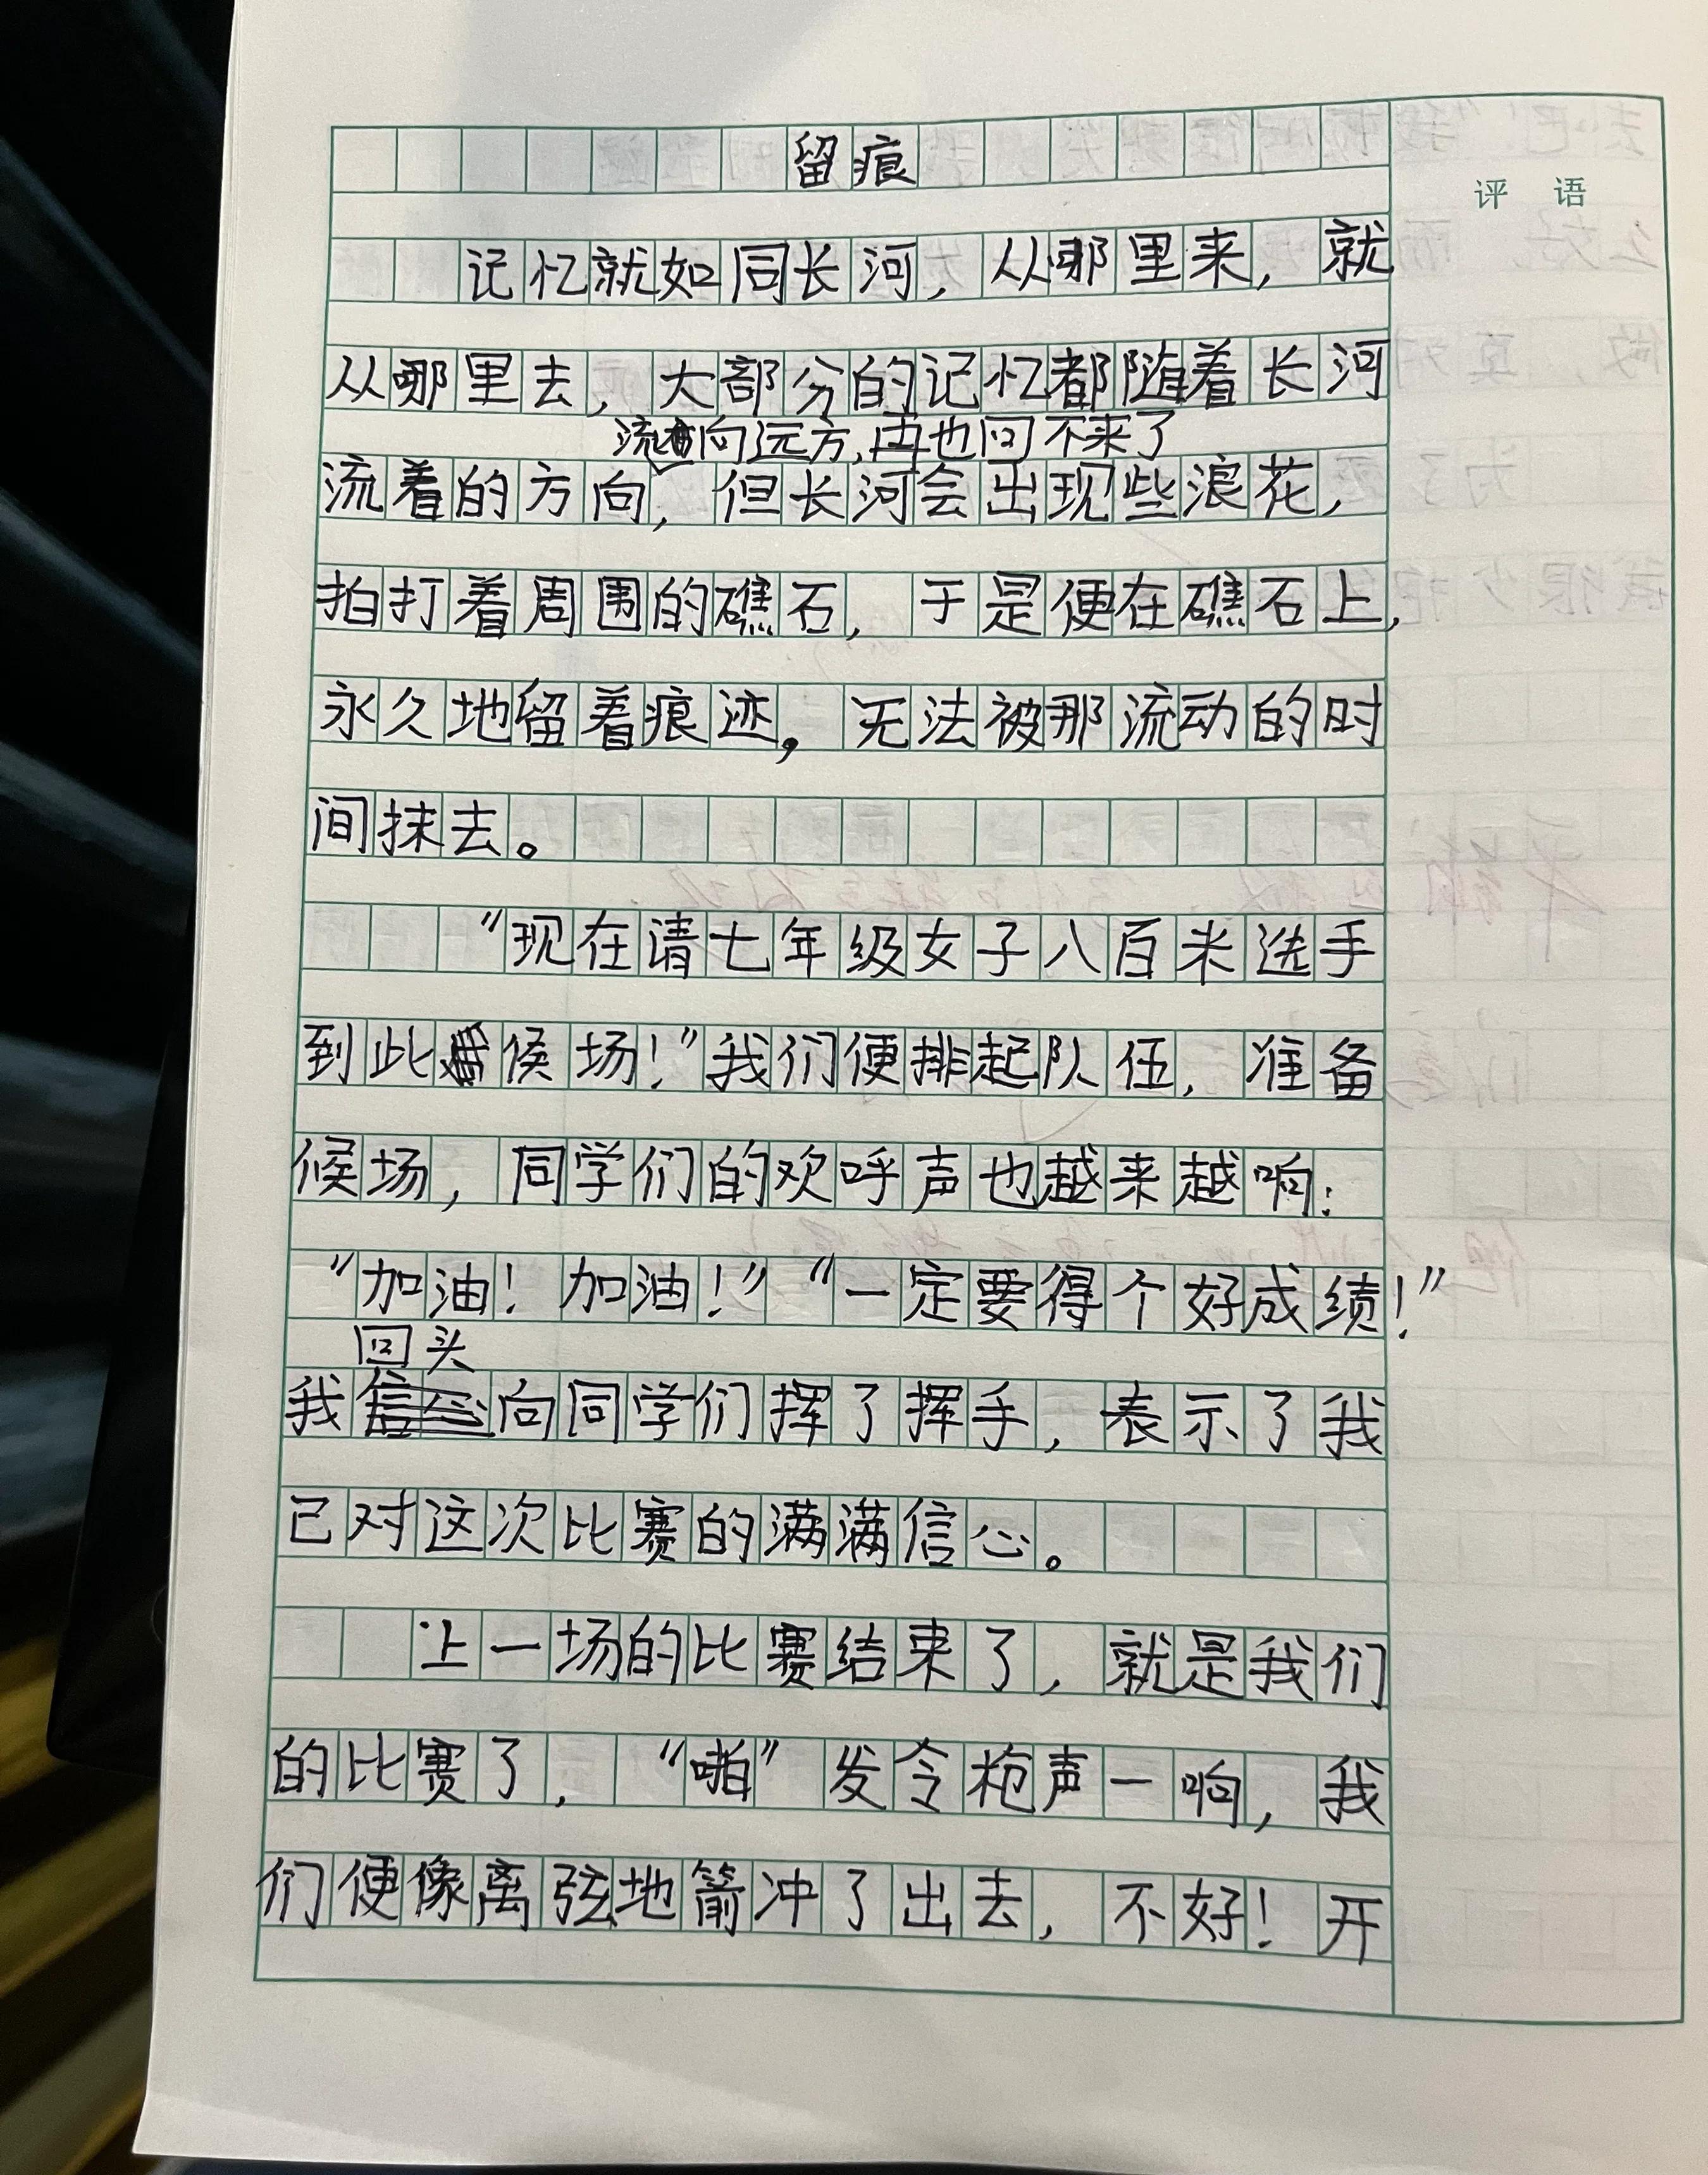 留痕
评语
记忆就如同长河，从哪里来，就
从哪里去，大部分的记忆都随着长河
流向远方，再也回不来了
流着的方向，但长河会出现些浪花，
拍打着周围的礁石，于是便在礁石上，
永久地留着痕迹，无法被那流动的时
间抹去。
“现在请七年级女子八百米选手
到此候场！”我们便排起队伍，准备
候场，同学们的欢呼声也越来越响：
“加油！加油！”“一定要得个好成绩！”
回头
我向同学们挥了挥手，表示了我
己对这次比赛的满满信心。
上一场的比赛结束了，就是我们
的比赛了，“啪”发令枪声一响，我
们便像离弦地箭冲了出去，不好！开